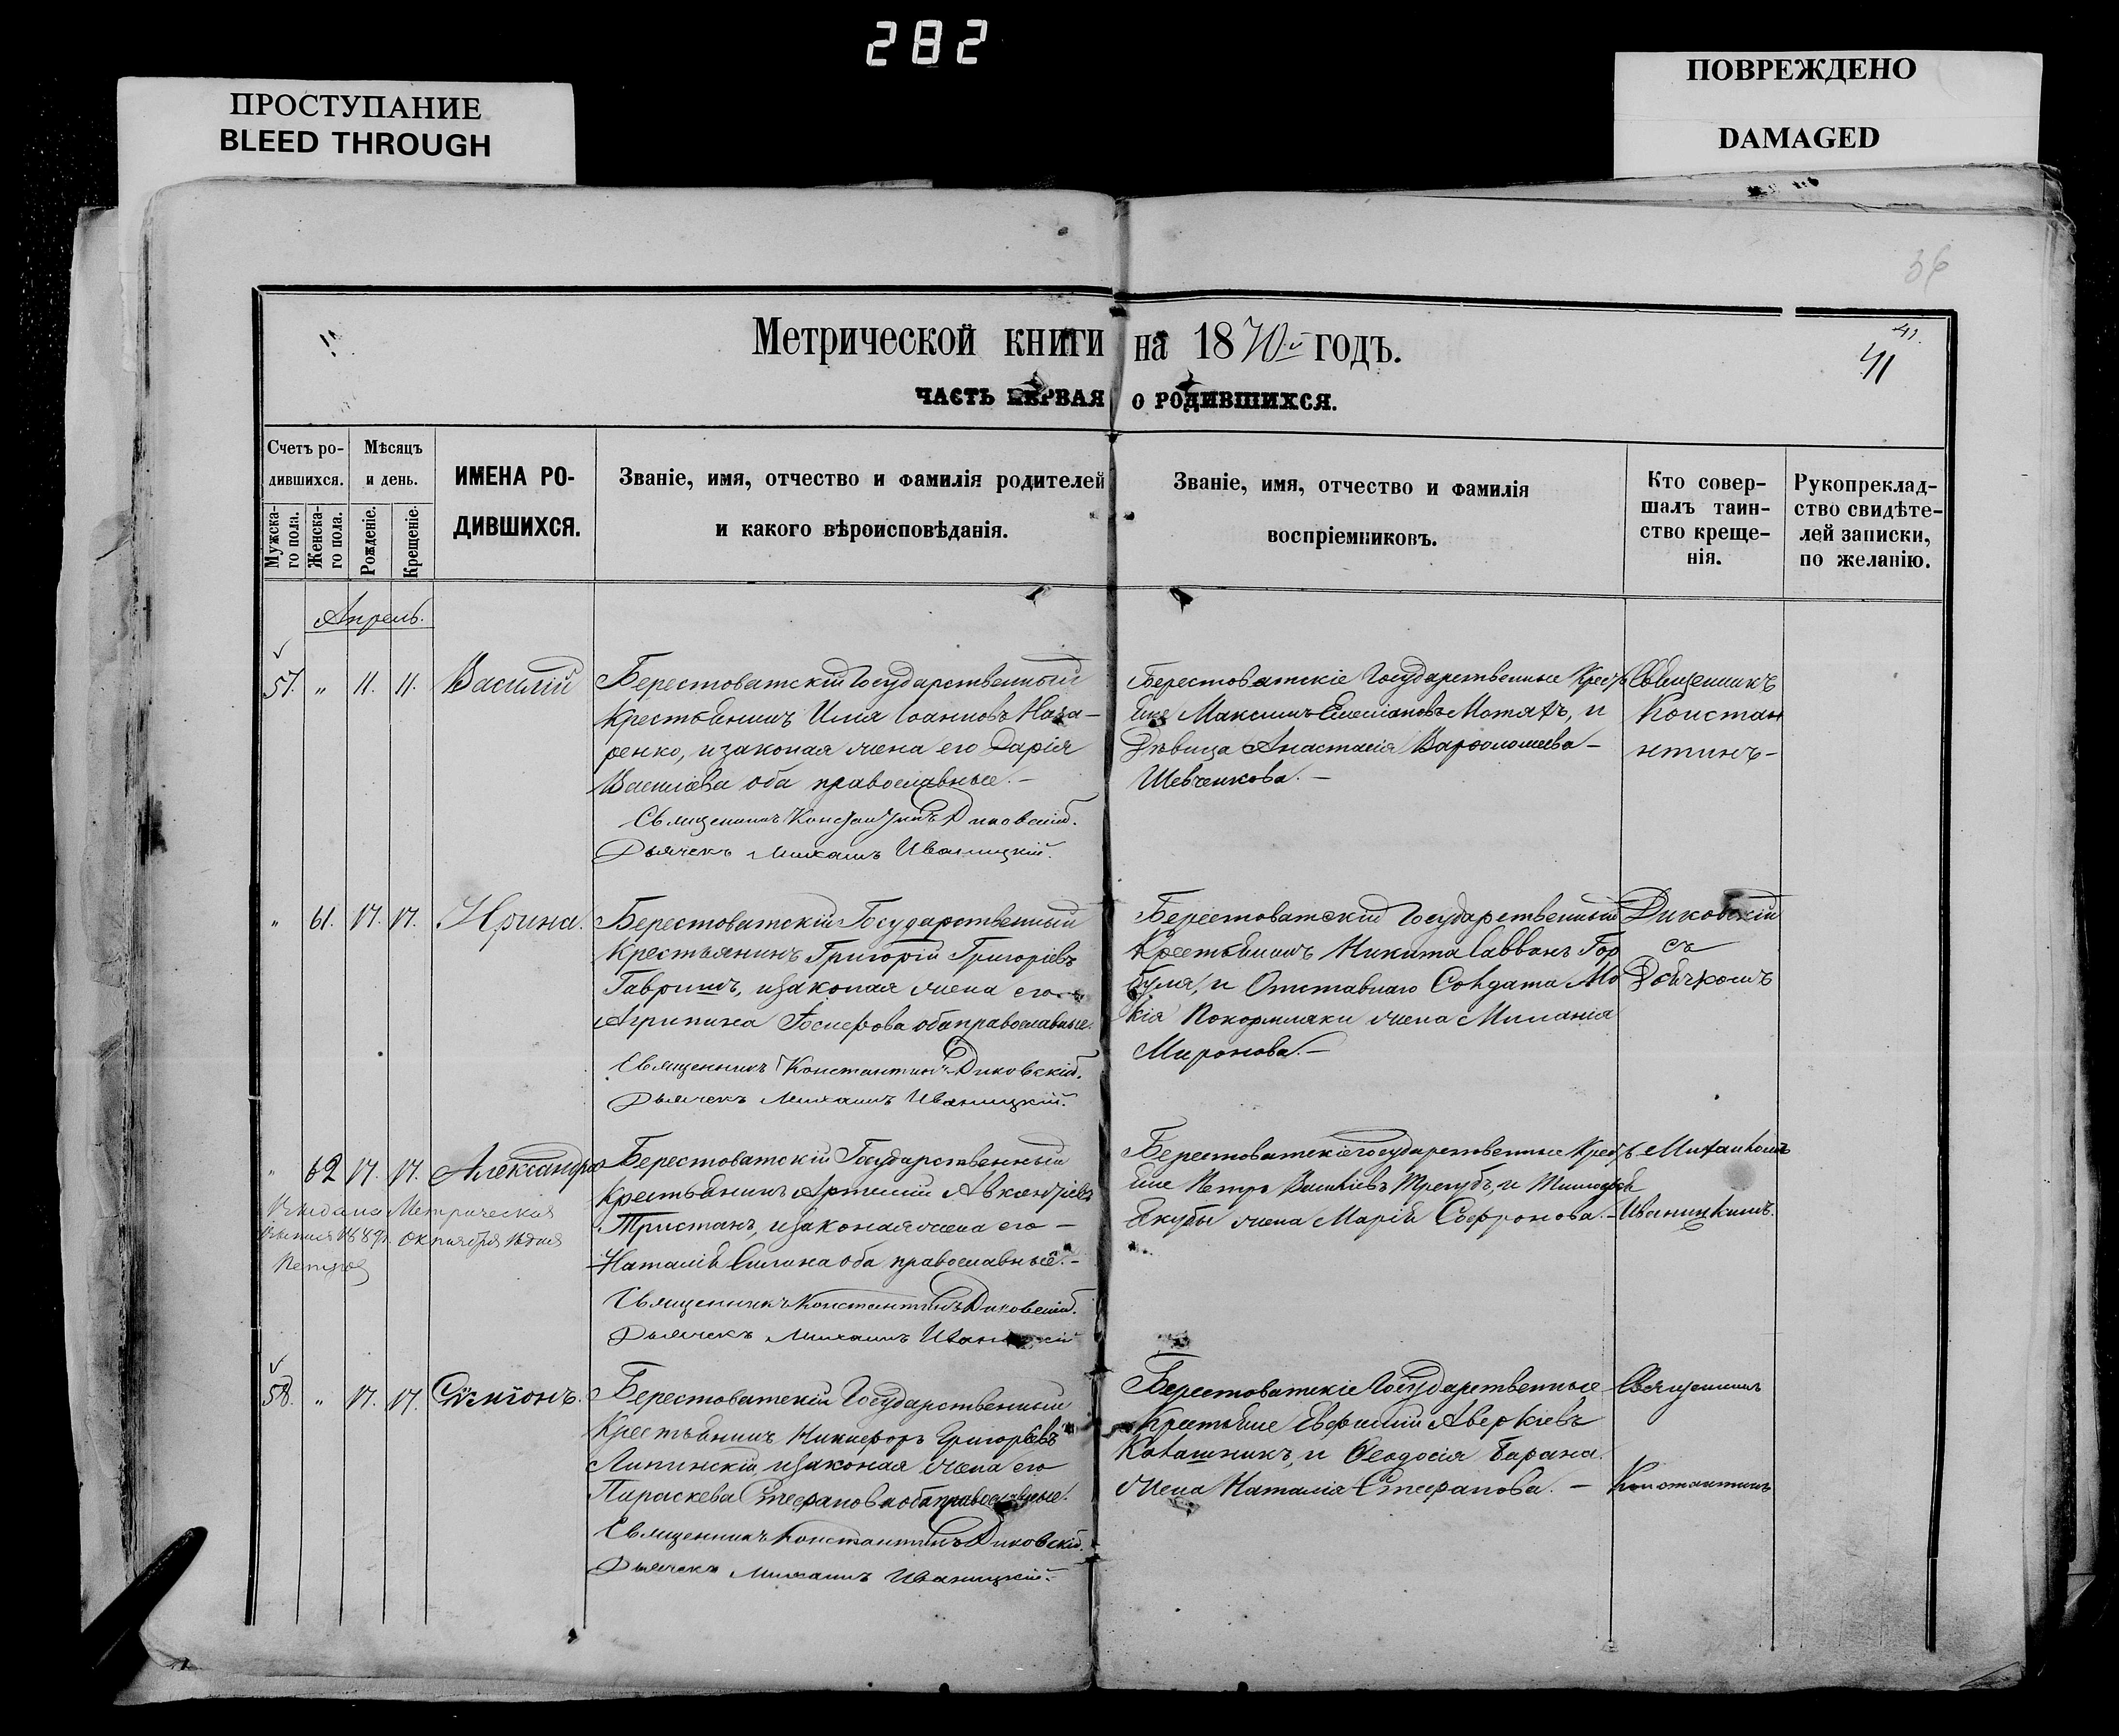 282
ПРОСТУПАНИЕ
BLEED THROUGH
ПОВРЕЖДЕНО
DAMAGED
36
Метрической книги на 1870-й годъ.
41.
41
ЧАСТЬ ПЕРВАЯ О РОДИВШИХСЯ.
Счетъ ро-
дившихся.
Мужска-
го пола.
Женска-
го пола.
Мѣсяцъ
и день.
Рожденіе.
Крещеніе.
ИМЕНА РО-
ДИВШИХСЯ.
Званіе, имя, отчество и фамилія родителей
и какого вѣроисповѣданія.
Званіе, имя, отчество и фамилія
воспріемниковъ.
Кто совер-
шалъ таин-
ство креще-
нія.
Рукопреклад-
ство свидѣте-
лей записки,
по желанію.
Апрель.
57. " 11. 11. Василій
Берестоватскій Государственный
Крестьянинъ Илія Іоанновъ Наза-
ренко, и законая жена его Дарія
Василіева оба православные.-
Священникъ Константинъ Диковскій.
Дьячекъ Михаилъ Иваницкій.
Берестоватскіе Государственные Кресть
яне Максимъ Емеліановъ Мотяхъ, и
Дѣвица Анастасія Варѳоломеева-
Шевченкова.-
Священникъ
Констан
нтинъ-
" 61. 17. 17. Ирина.
Берестоватскій Государственный
Крестьянинъ Григорій Григоріевъ
Гавришъ, и законая жена его
Агрипина Іосифова оба православные.
Священникъ Константинъ Диковскій.
Дьячекъ Михаилъ Иваницкій.
Берестоватскій Государственный
Крестьянинъ Никита Саввовъ Гор
буля, и Отставнаго Солдата Мо
кія Покормляки жена Миланія
Миронова.-
Диковскій
съ
Дьячкомъ
" 62 17. 17. Александра
Выдана Метрическая
1889 г. Октября дня
Берестоватскій Государственный
Крестьянинъ Артемій
Тристанъ, и законая жена его-
Наталія Силина оба православные.-
Священникъ Константинъ Диковскій.
Дьячекъ Михаилъ Иваницкій
Берестоватскіе государственные Кресть
яне Петръ Василіевъ Трегубъ, и Тимоѳея
Якубы жена Марія Софронова.-
Михаиломъ
Иваницкимъ.
58. " 17. 17. Сѵмеонъ.
Берестоватскій Государственный
Крестьянинъ Никифоръ Григоріевъ
Липинскій, и законая жена его
Параскева Стефанова оба православные.
Священникъ Константинъ Диковскій.
Дьячекъ Михаилъ Иваницкій.
Берестоватскіе Государственные
Крестьяне Евфимій Аверкіевъ
Калашникъ, и Ѳеодосія Барана
жена Наталія Стефанова.-
Священникъ
Константинъ